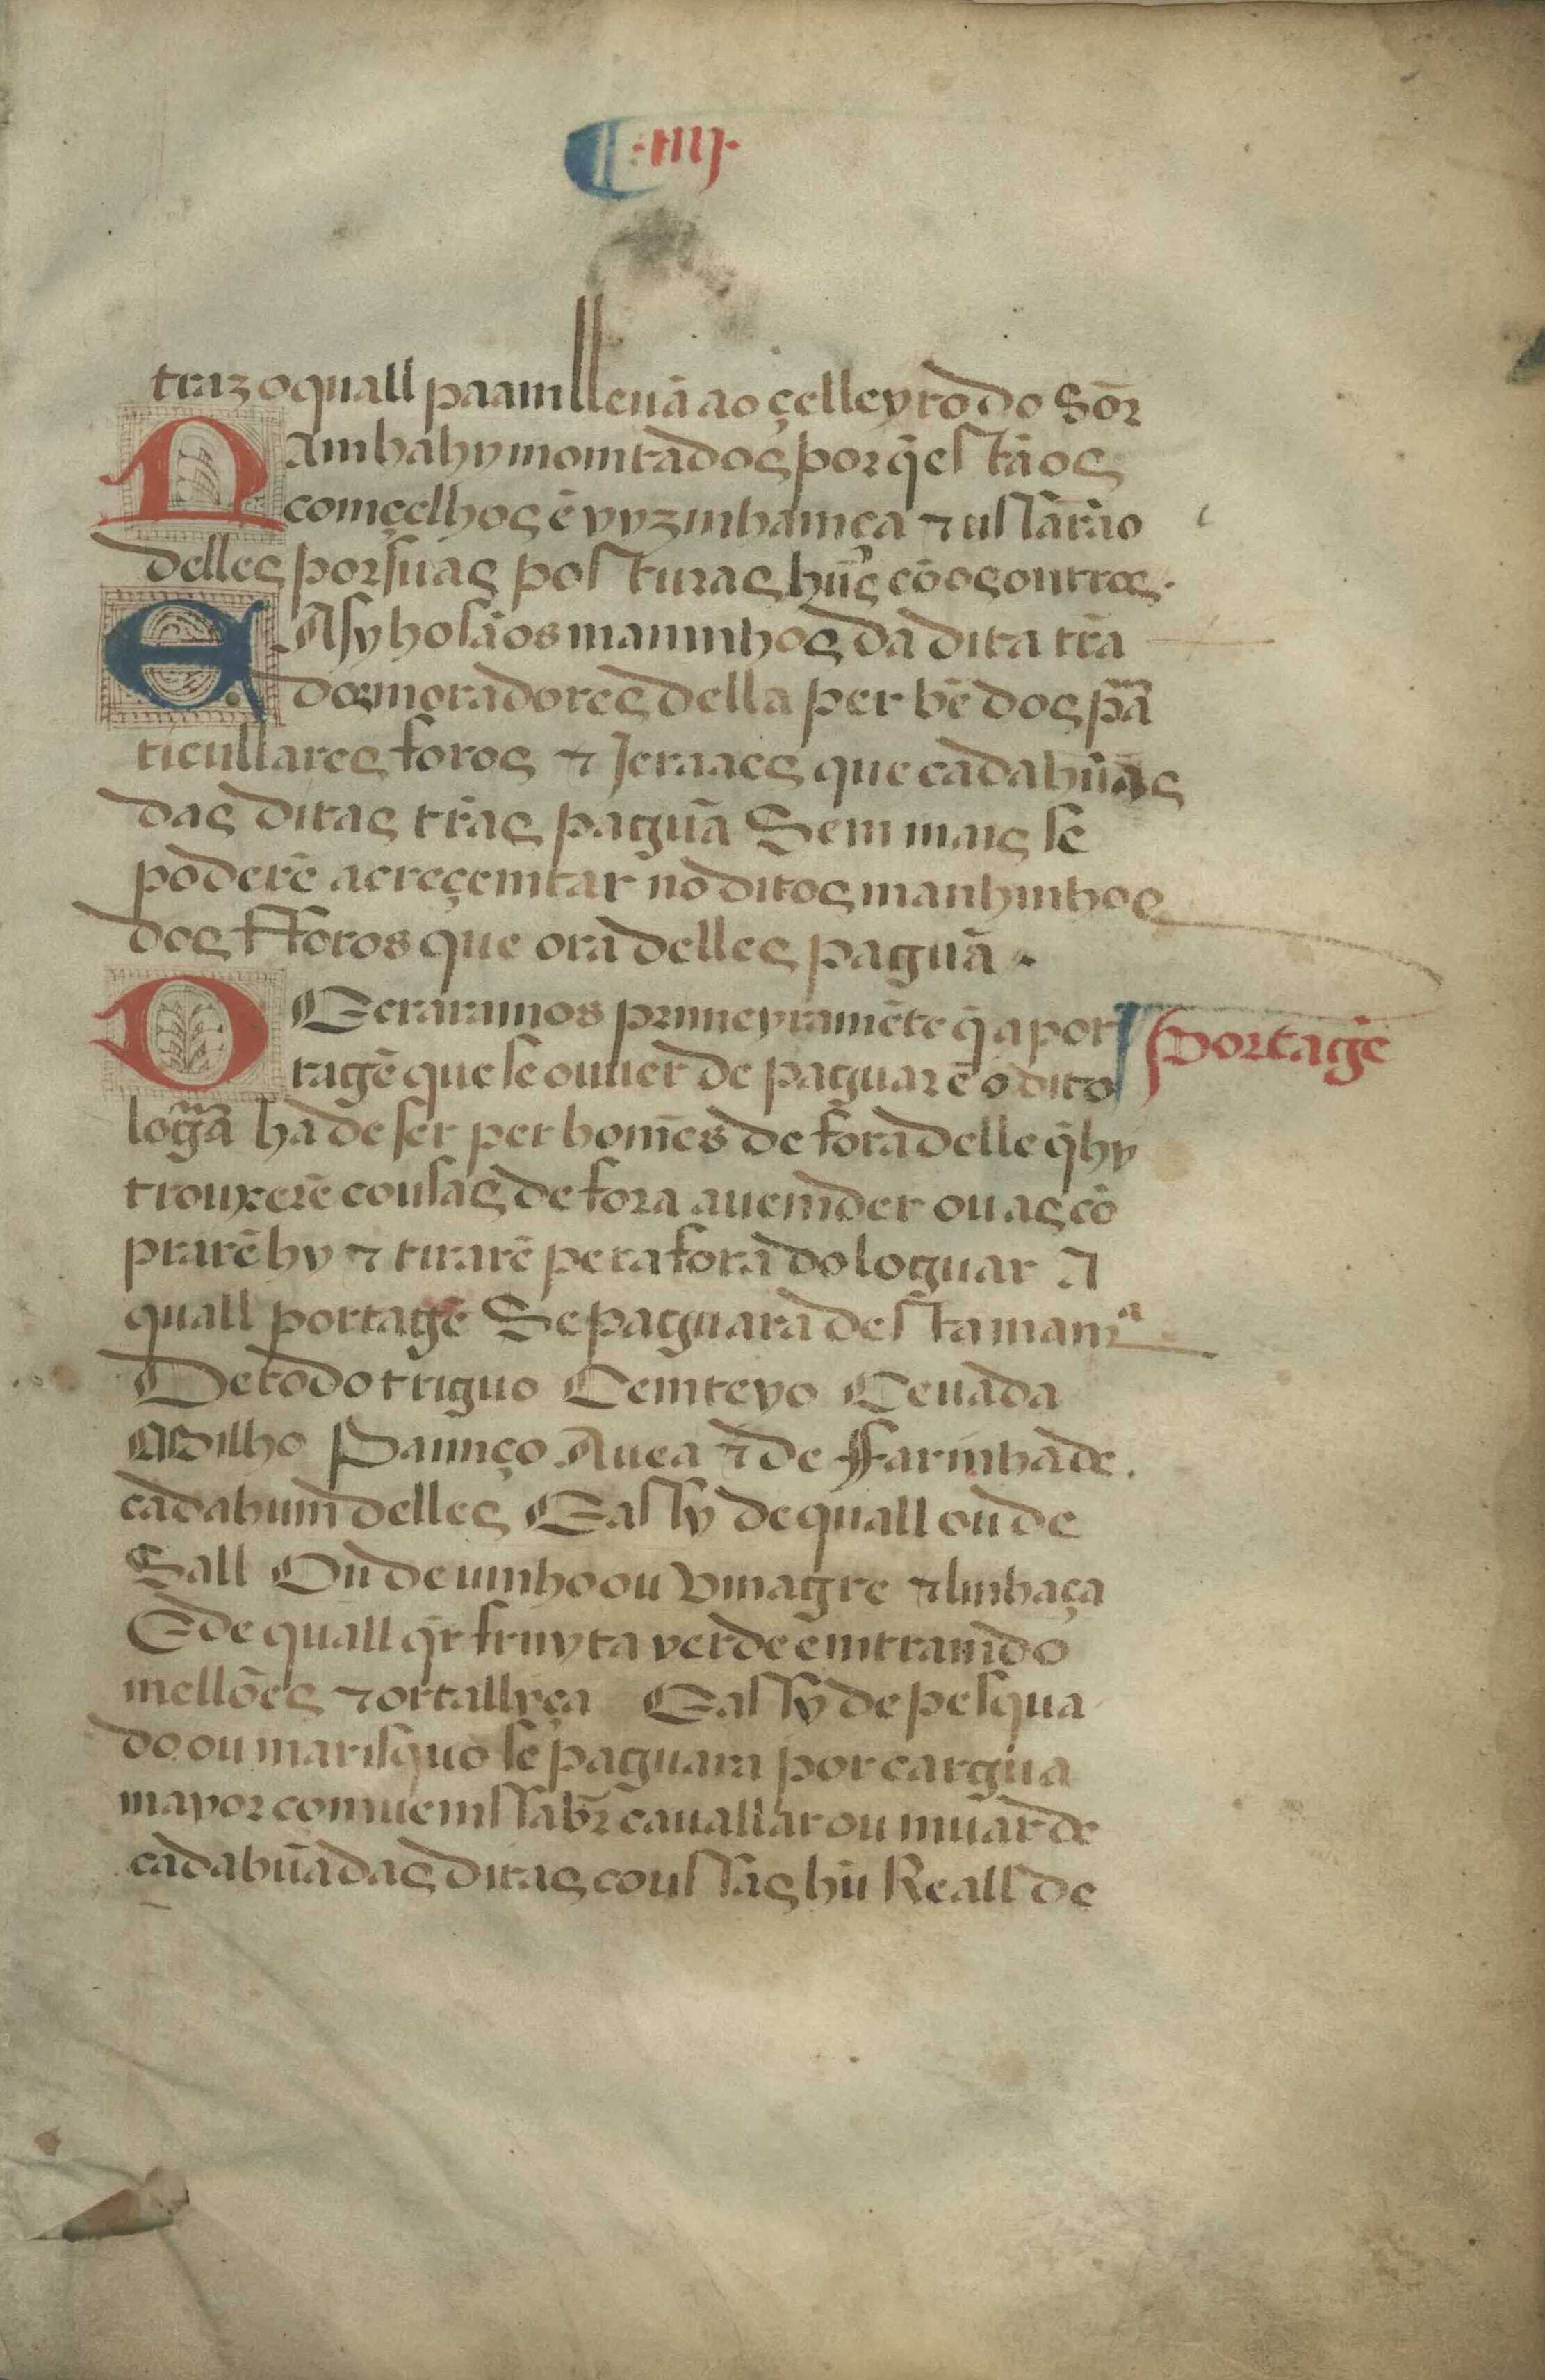 ¶ ·IIIJ·
traz oquall paam lleuā ao çelleyro do Sōr
Nam ha hy momtados por q̄ estā os
comçelhos ē vyzinhamça ⁊ usſarāo
delles por suas posturas hūs cō os outros.
E Asy ho sā os maninhos da dita trā
dos moradores della per bē dos p̃a
ticullares foros ⁊ Jeraaes que cada hūas
das ditas trās paguā Sem mais se
poderē acreçemtar nō ditos manhinhos
dos fforos que ora delles paguā
DEcraramos primeyramēte q̄ a por
tagē que se ouuer de paguar ē o dito
log̃a ha de ser per homēs de fora delle q̄ hy
trouxerē cousas de fora a uemder ou as cō
prarē hy ⁊ tirarē pera fora do loguar A
quall portagē Se paguara desta manr̃ᵃ
De todo triguo Cemteyo Ceuada
Milho Painço Auea ⁊ de ffarinha de.
cada hum delles E assy de quall ou de
Sall Ou de uinho ou vinagre ⁊ linhaça
E de quall q̄r fruyta verde ēmtramdo
mellōes ⁊ ortallyça E assy de pesqua
do ou marisquo se paguara por cargua
mayor comuem ssab̄r cauallar ou muar de
cada hūa das ditas coussas hū Reall de
portagē